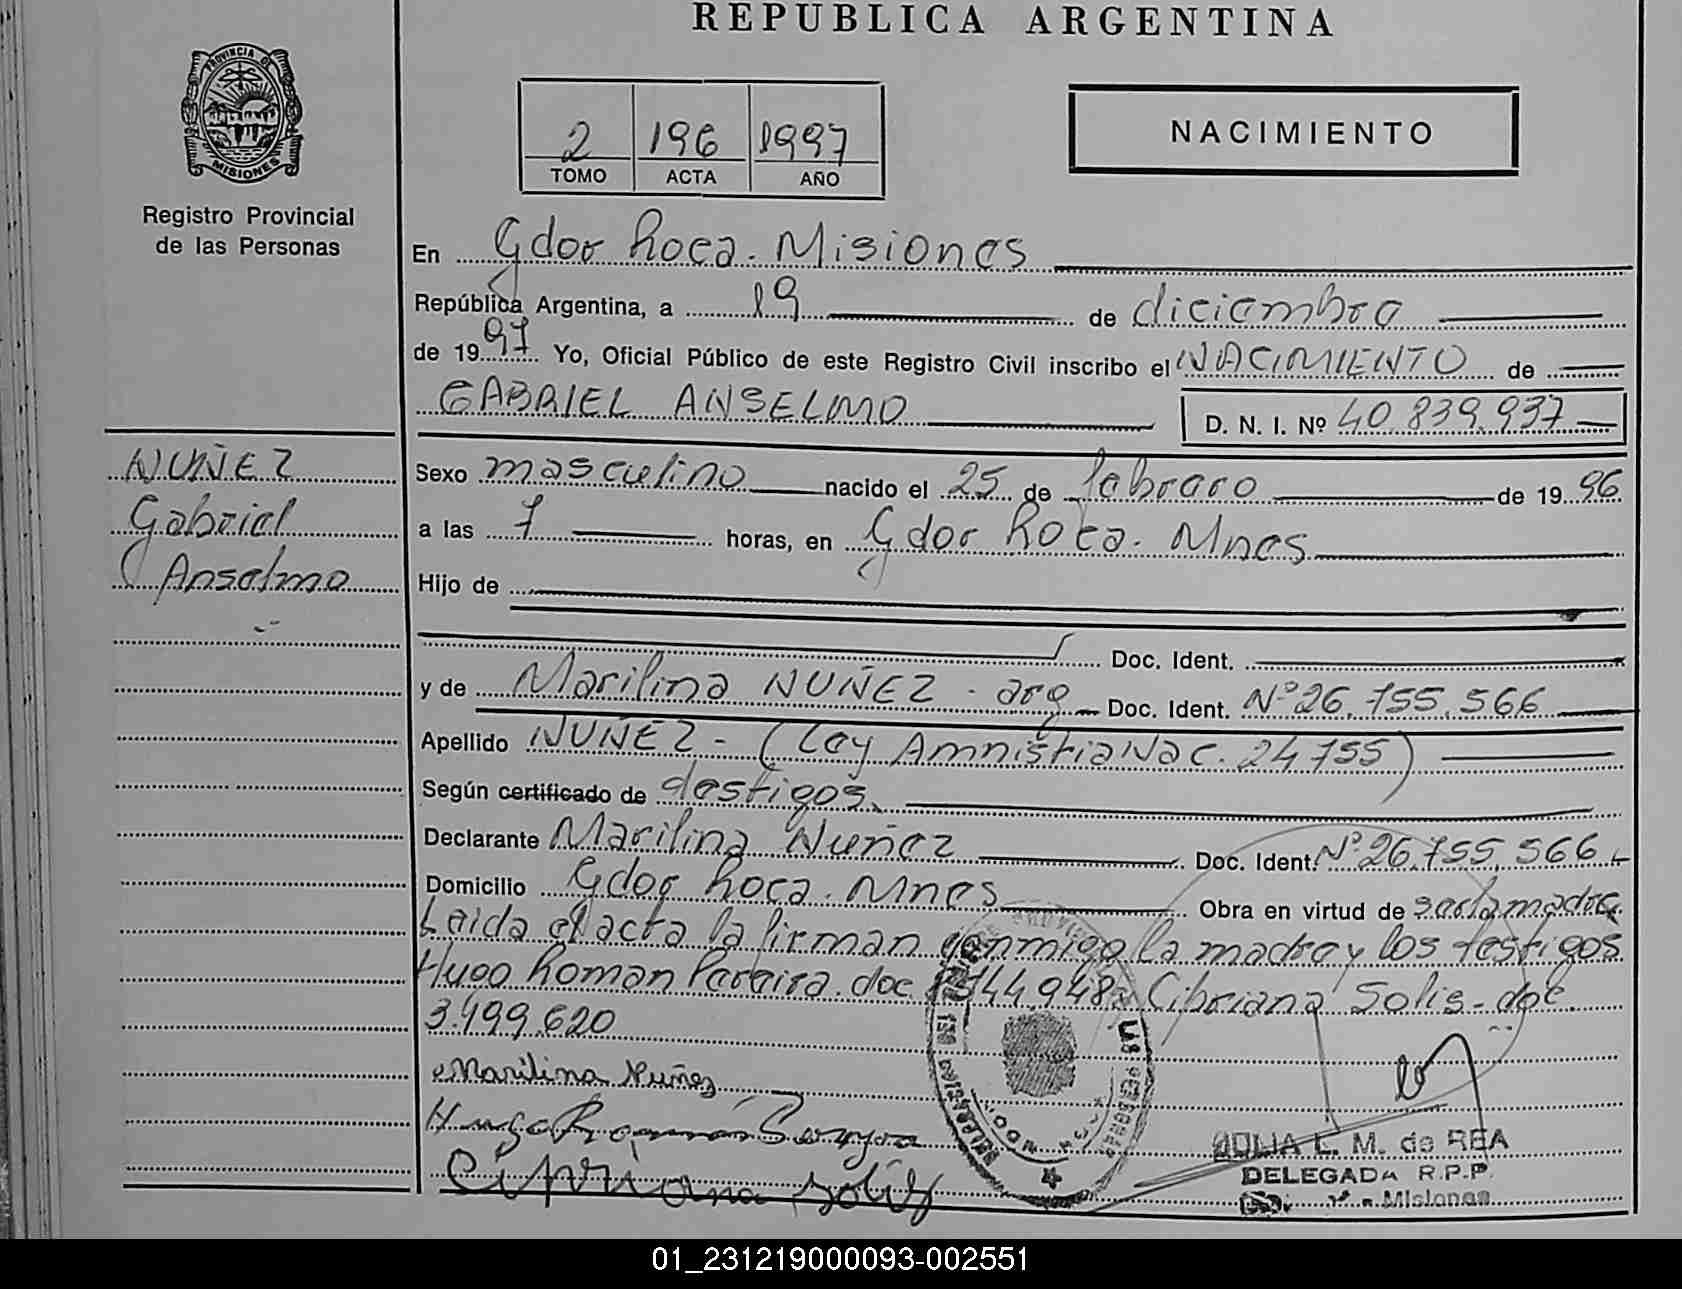 REPUBLICA ARGENTINA
PROVINCIA DE
MISIONES
Registro Provincial
de las Personas
2 196 1997
TOMO ACTA AÑO
NACIMIENTO
En Gdor Roca. Misiones
República Argentina, a 19 de diciembre
de 1997 Yo, Oficial Público de este Registro Civil inscribo el NACIMIENTO de
GABRIEL ANSELMO D. N. I. Nº 40.839.937
NUÑEZ
Gabriel
Anselmo
Sexo masculino nacido el 25 de febrero de 1996
a las 7 horas, en Gdor Roca. Mnes
Hijo de
Doc. Ident.
y de Marilina NUÑEZ - arg Doc. Ident. Nº 26.755.566
Apellido NUÑEZ - (Ley Amnistia Nac. 24755)
Según certificado de testigos.
Declarante Marilina Nuñez Doc. Ident. Nº 26.755.566
Domicilio Gdor Roca. Mnes Obra en virtud de ser la madre
Leida el acta la firman conmigo la madre y los testigos
Hugo Roman Pereira. doc Cibriana Solis - doc
3.499.620
Marilina Nuñez
Hugo Roman
Cipriana Solis
L. M. de REA
DELEGADA R.P.P.
Misiones
01_231219000093-002551